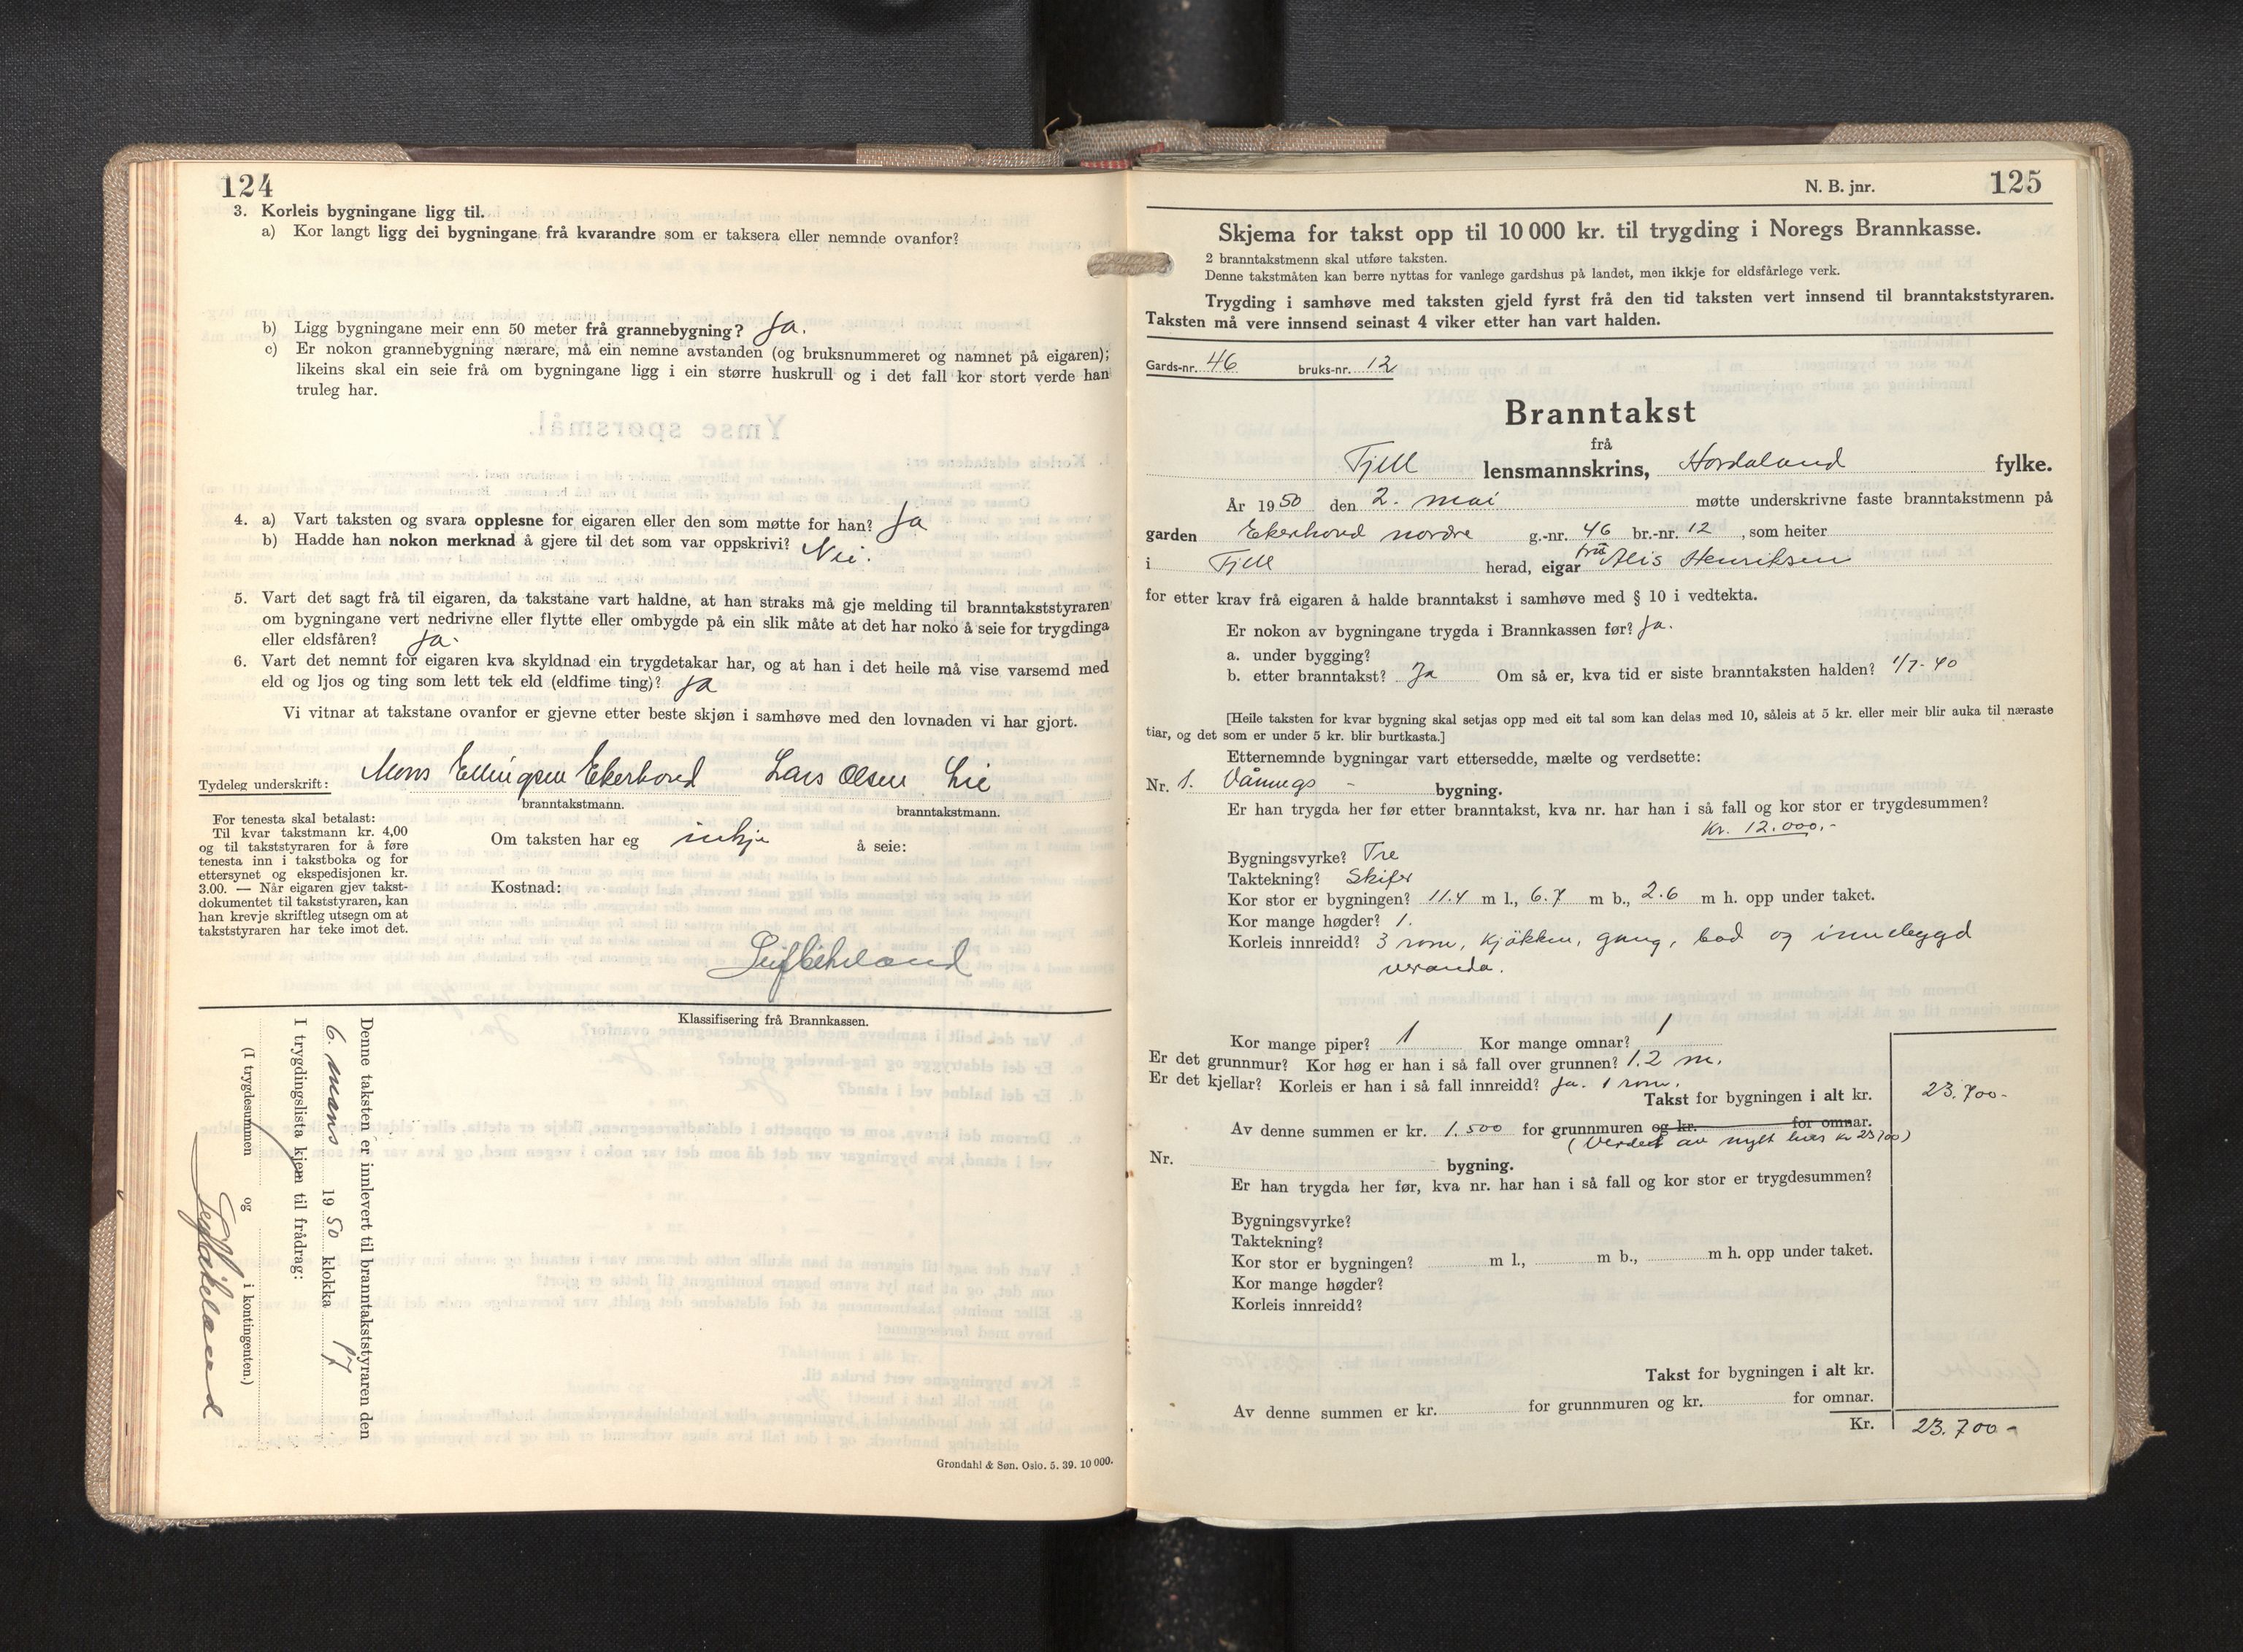 124
3. Korleis bygningane ligg til.
a) Kor langt ligg dei bygningane frå kvarandre som er taksera eller nemnde ovanfor?
b) Ligg bygningane meir enn 50 meter frå grannebygning? Ja.
c) Er nokon grannebygning nærare, må ein nemne avstanden (og bruksnummeret og namnet på eigaren);
likeins skal ein seie frå om bygningane ligg i ein større huskrull og i det fall kor stort verde han
truleg har.
4. a) Vart taksten og svara opplesne for eigaren eller den som møtte for han? Ja
b) Hadde han nokon merknad å gjere til det som var oppskrivi? Nei.
5. Vart det sagt frå til eigaren, da takstane vart haldne, at han straks må gje melding til branntakststyraren
om bygningane vert nedrivne eller flytte eller ombygde på ein slik måte at det har noko å seie for trygdinga
eller eldsfåren? Ja.
6. Vart det nemnt for eigaren kva skyldnad ein trygdetakar har, og at han i det heile må vise varsemd med
eld og ljos og ting som lett tek eld (eldfime ting)? Ja
Vi vitnar at takstane ovanfor er gjevne etter beste skjøn i samhøve med den lovnaden vi har gjort.
Tydeleg underskrift: Mons Ellingsen Ekerhovd Lars Olsen Lie
branntakstmann. branntakstmann.
For tenesta skal betalast:
Til kvar takstmann kr. 4,00
og til takststyraren for å føre
tenesta inn i takstboka og for
ettersynet og ekspedisjonen kr.
3.00. — Når eigaren gjev takst-
dokumentet til takststyraren, kan
han krevje skriftleg utsegn om at
takststyraren har teke imot det.
Om taksten har eg inkje å seie:
Kostnad:
Klassifisering frå Brannkassen.
Denne taksten er innlevert til branntakststyraren den
6. mars 1950 klokka 17
I trygdingslista kjem til frådrag:
(I trygdesummen og i kontingenten.)
Grøndahl & Søn. Oslo. 5. 39. 10 000.
N. B. jnr. 125
Skjema for takst opp til 10 000 kr. til trygding i Noregs Brannkasse.
2 branntakstmenn skal utføre taksten.
Denne takstmåten kan berre nyttas for vanlege gardshus på landet, men ikkje for eldsfårlege verk.
Trygding i samhøve med taksten gjeld fyrst frå den tid taksten vert innsend til branntakststyraren.
Taksten må vere innsend seinast 4 viker etter han vart halden.
Gards-nr. 46 bruks-nr. 12
Branntakst
frå
Fjell lensmannskrins, Hordaland fylke.
År 1950 den 2. mai møtte underskrivne faste branntakstmenn på
garden Ekerhovd nordre g.-nr. 46 br.-nr. 12, som heiter
i Fjell herad, eigar fru Alis Henriksen
for etter krav frå eigaren å halde branntakst i samhøve med § 10 i vedtekta.
Er nokon av bygningane trygda i Brannkassen før? Ja.
a. under bygging?
b. etter branntakst? Ja Om så er, kva tid er siste branntaksten halden? 1/7-40
[Heile taksten for kvar bygning skal setjas opp med eit tal som kan delas med 10, såleis at 5 kr. eller meir blir auka til næraste
tiar, og det som er under 5 kr. blir burtkasta.]
Etternemnde bygningar vart ettersedde, mælte og verdsette:
Nr. 1. Vånings- bygning.
Er han trygda her før etter branntakst, kva nr. har han i så fall og kor stor er trygdesummen?
Kr. 12.000,-
Bygningsvyrke? Tre
Taktekning? Skifer
Kor stor er bygningen? 11.4 m l., 6.7 m b., 2.6 m h. opp under taket.
Kor mange høgder? 1.
Korleis innreidd? 3 rom, kjökken, gang, bad og innebygd
veranda.
Kor mange piper? 1 Kor mange omnar? 1
Er det grunnmur? Kor høg er han i så fall over grunnen? 1.2 m.
Er det kjellar? Korleis er han i så fall innreidd? Ja. 1 rom.
Takst for bygningen i alt kr. 23.700-
Av denne summen er kr. 1.500 for grunnmuren og kr. for omnar.
(Verdet av nytt hus kr 23700)
Nr. bygning.
Er han trygda her før, kva nr. har han i så fall og kor stor er trygdesummen?
Bygningsvyrke?
Taktekning?
Kor stor er bygningen? m l., m b., m h. opp under taket.
Kor mange høgder?
Korleis innreidd?
Takst for bygningen i alt kr.
Av denne summen er kr. for grunnmuren og kr. for omnar.
Kr. 23.700-